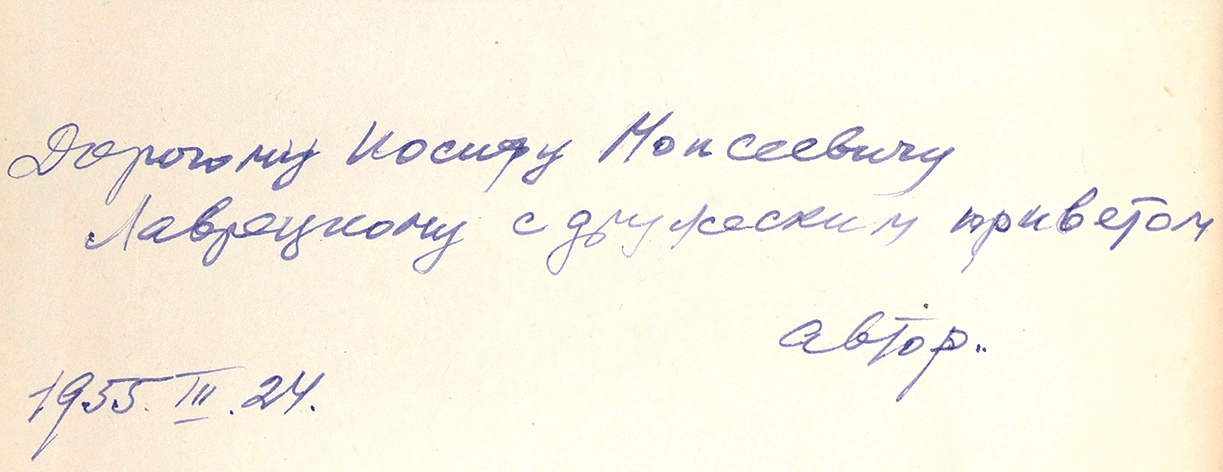 Дорогому Иосифу Моисеевичу
Лаврецкому с дружеским приветом
автор..
1955. III. 24.